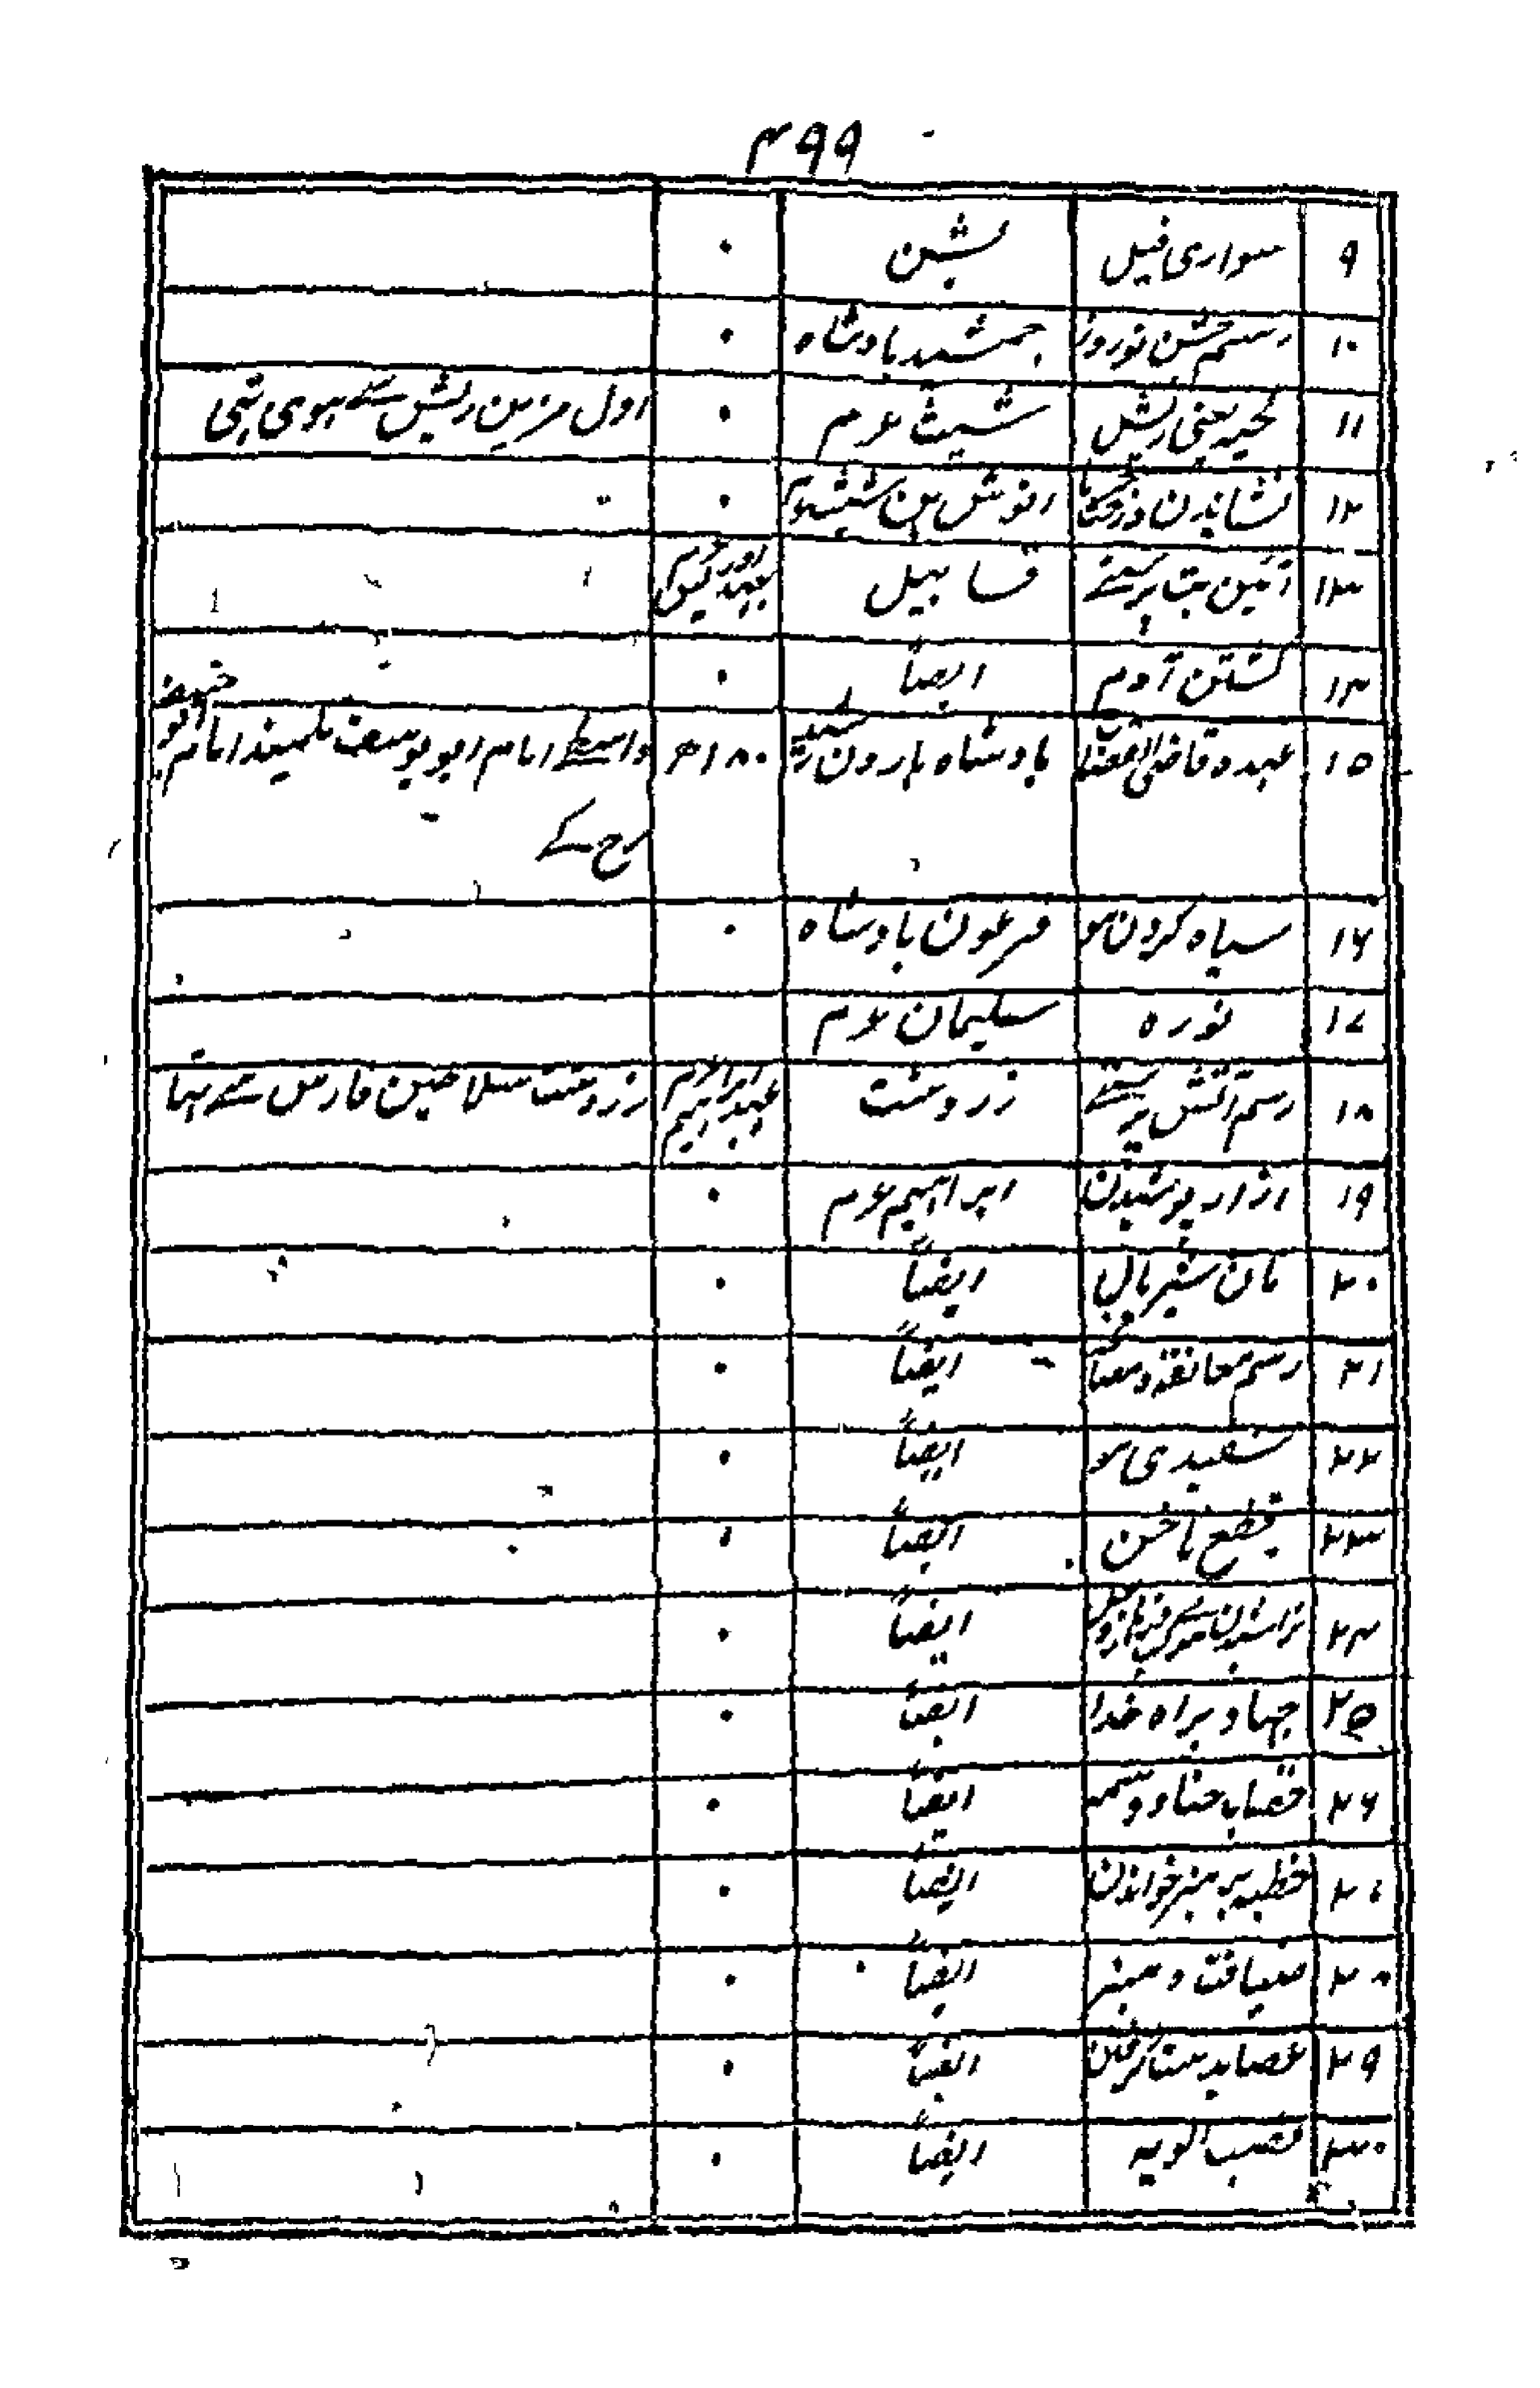 ۴۹۹
۹ سواری فیل بشن ۰
۱۰ رسم جشن نوروز جمشید بادشاہ ۰
۱۱ لحیہ یعنی ریش شیث عرم ۰ اول مزین ریش سے یہوی تہی
۱۲ نشاندن درخت انوش بن شیث عرم ۰
۱۳ آئین بت پرستے قابیل بعہد
۱۴ کشتن آدم ایضاً ۰
۱۵ عہدہ قاضی القضا بادشاہ ہارون رشید ۱۸۰ واسطے امام ابو یوسف تلمیذ امام ابو حنیفہ
رح کے
۱۶ سیاہ کردن مو فرعون بادشاہ ۰
۱۷ نورہ سلیمان عرم
۱۸ رسم آتش پرستے زردشت عہد ابراہیم عرم زردشت سلاطین فارس سے تہا
۱۹ ازار پوشیدن ابراہیم عرم ۰
۲۰ نان شیرمال ایضاً ۰
۲۱ رسم معانقہ و مصافحہ ایضاً ۰
۲۲ سفیدی مو ایضاً ۰
۲۳ قطع ناخن ایضاً ۰
۲۴ تراشیدن موے ایضاً ۰
۲۵ جہاد براہ خدا ایضاً ۰
۲۶ خضاب حناء و وسمہ ایضاً ۰
۲۷ خطبہ بر منبر خواندن ایضاً ۰
۲۸ ضیافت و منبر ایضاً ۰
۲۹ عصا بدست گرفتن ایضاً ۰
۳۰ نصب الویہ ایضاً ۰